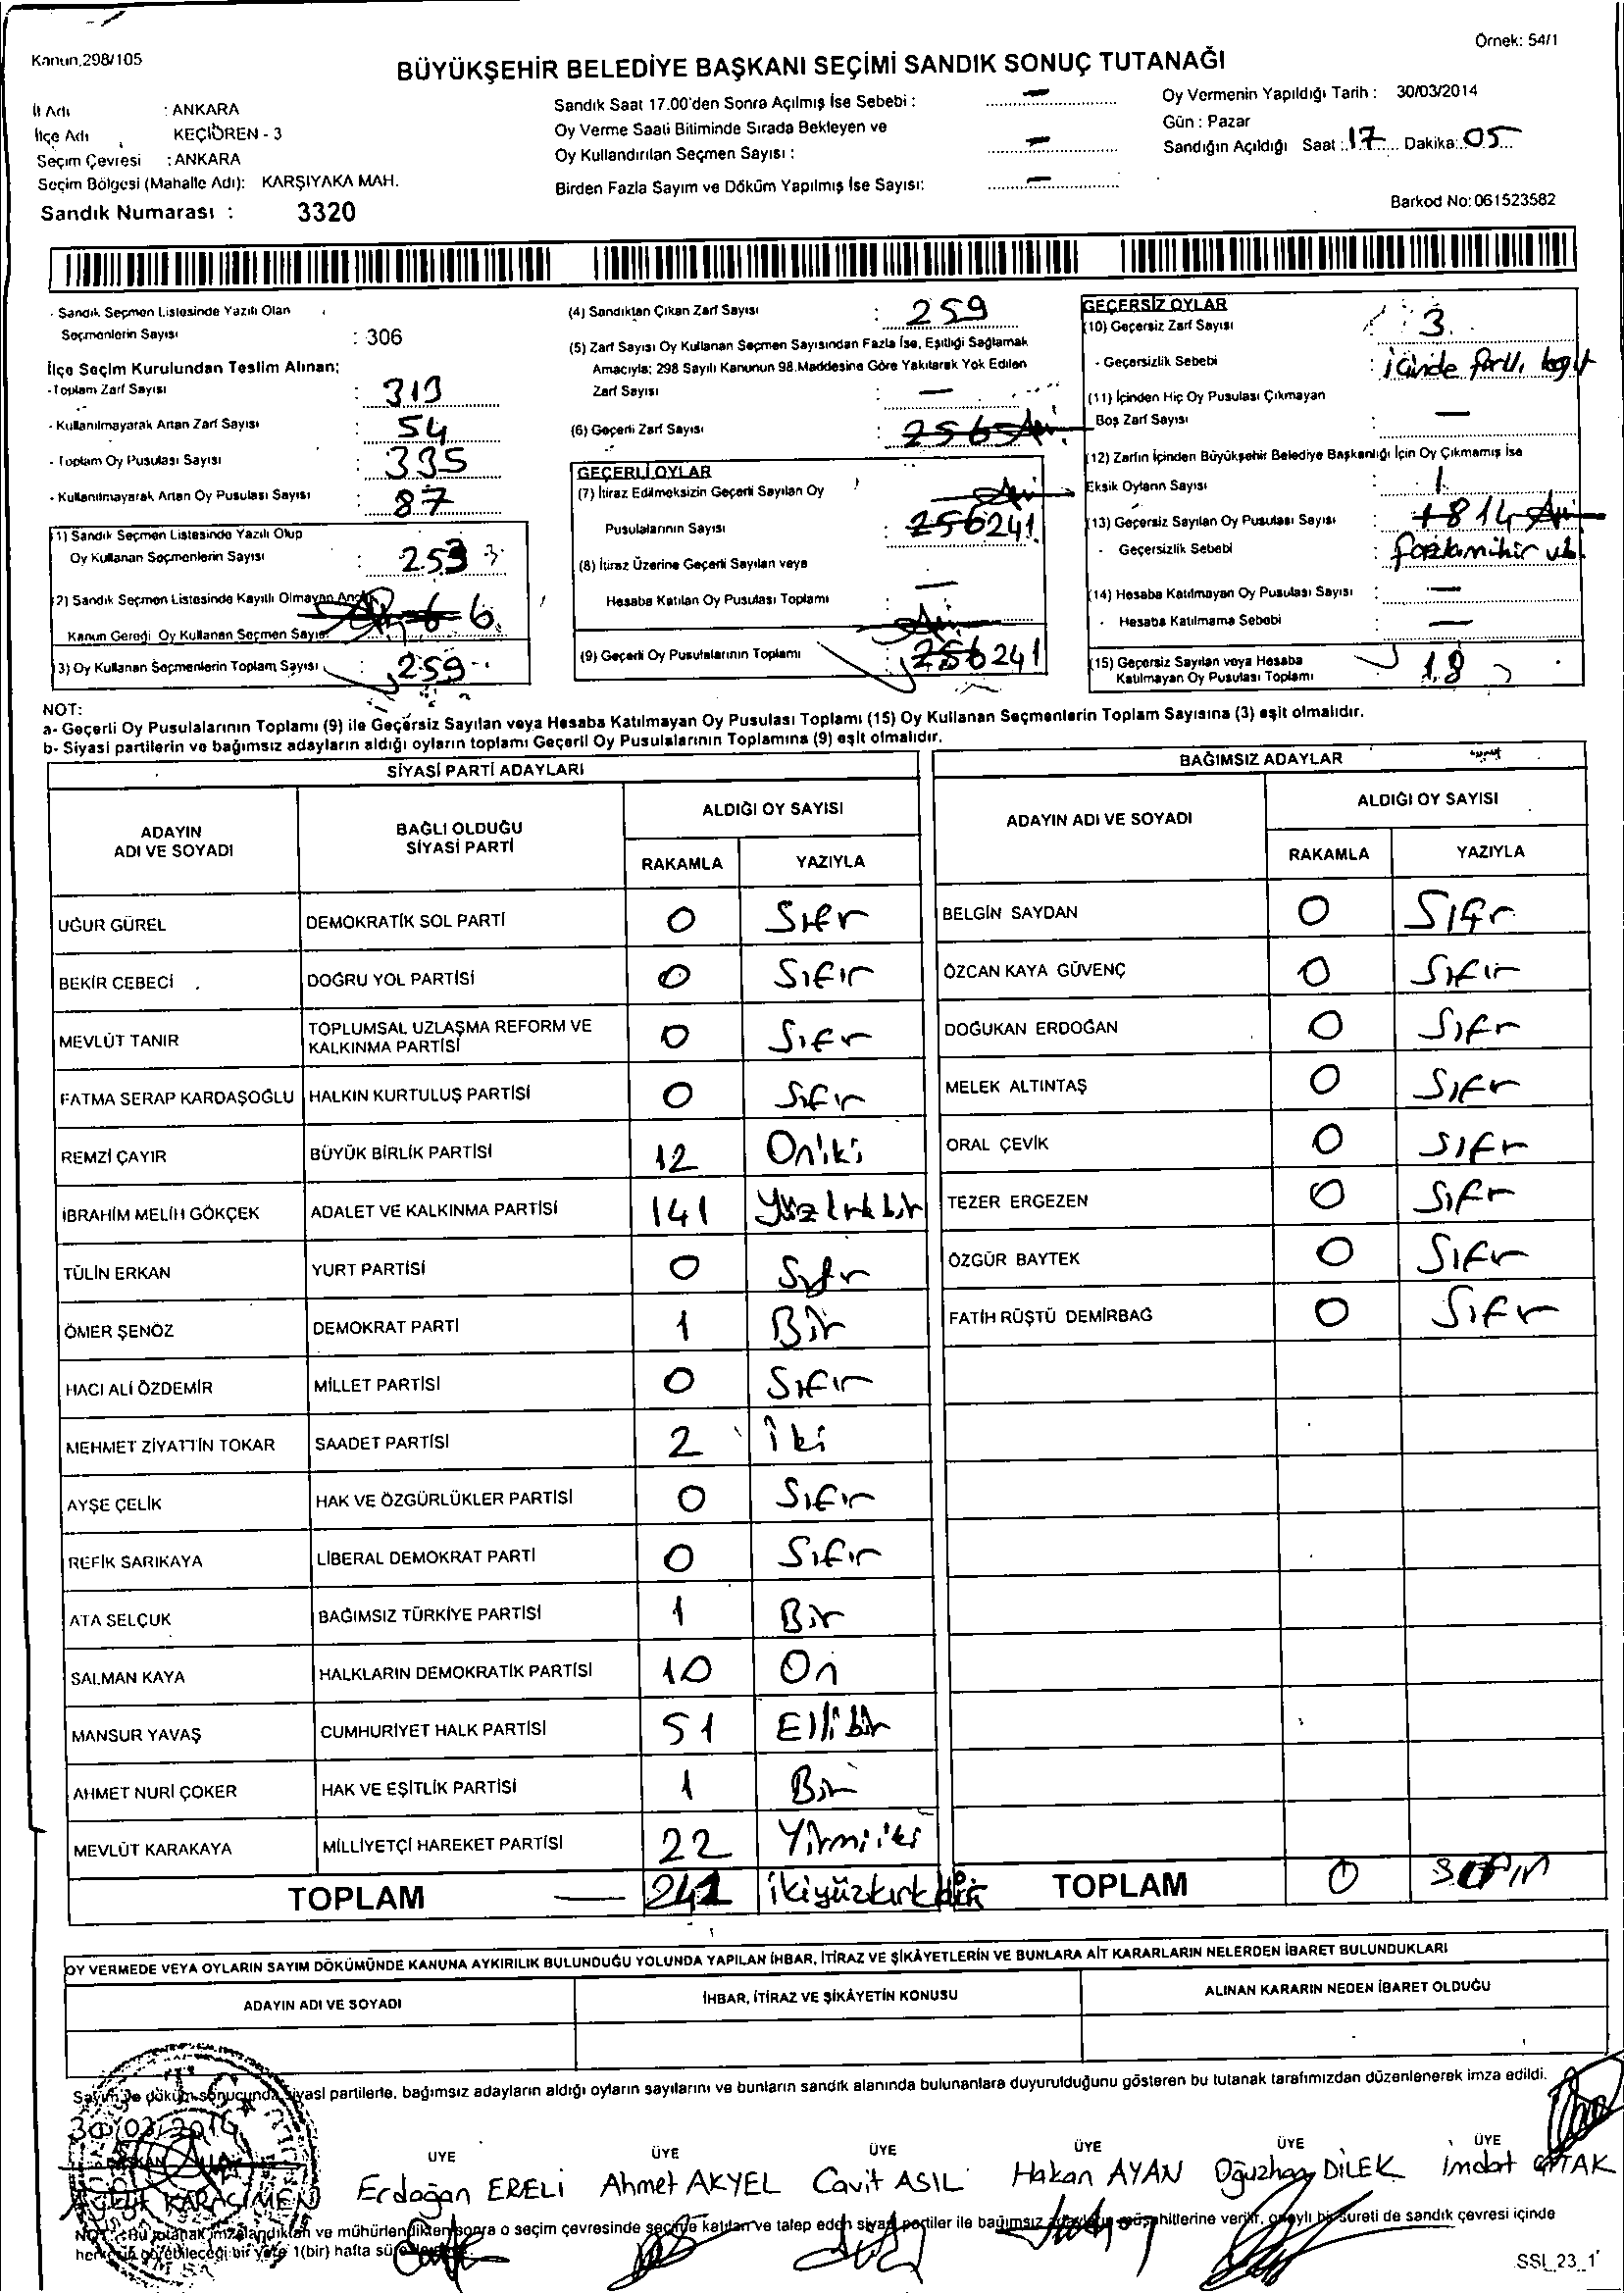 Kanun.298/105
Örnek: 54/1
BÜYÜKŞEHİR BELEDİYE BAŞKANI SEÇİMİ SANDIK SONUÇ TUTANAĞI
İl Adı : ANKARA
İlçe Adı KEÇİÖREN - 3
Seçim Çevresi : ANKARA
Seçim Bölgesi (Mahalle Adı): KARŞIYAKA MAH.
Sandık Numarası : 3320
Sandık Saat 17.00'den Sonra Açılmış İse Sebebi : —
Oy Verme Saati Bitiminde Sırada Bekleyen ve
Oy Kullandırılan Seçmen Sayısı : —
Birden Fazla Sayım ve Döküm Yapılmış İse Sayısı: —
Oy Vermenin Yapıldığı Tarih : 30/03/2014
Gün : Pazar
Sandığın Açıldığı Saat : 17 Dakika: 05
Barkod No: 061523582
- Sandık Seçmen Listesinde Yazılı Olan
Seçmenlerin Sayısı : 306
İlçe Seçim Kurulundan Teslim Alınan;
- Toplam Zarf Sayısı : 313
- Kullanılmayarak Artan Zarf Sayısı : 54
- Toplam Oy Pusulası Sayısı : 335
- Kullanılmayarak Artan Oy Pusulası Sayısı : 87
(1) Sandık Seçmen Listesinde Yazılı Olup
Oy Kullanan Seçmenlerin Sayısı : 253
(2) Sandık Seçmen Listesinde Kayıtlı Olmayan Ancak
Kanun Gereği Oy Kullanan Seçmen Sayısı 6
(3) Oy Kullanan Seçmenlerin Toplam Sayısı 259
(4) Sandıktan Çıkan Zarf Sayısı : 259
(5) Zarf Sayısı Oy Kullanan Seçmen Sayısından Fazla İse, Eşitliği Sağlamak
Amacıyla; 298 Sayılı Kanunun 98.Maddesine Göre Yakılarak Yok Edilen
Zarf Sayısı : —
(6) Geçerli Zarf Sayısı : 256
GEÇERLİ OYLAR
(7) İtiraz Edilmeksizin Geçerli Sayılan Oy
Pusulalarının Sayısı : 256 241
(8) İtiraz Üzerine Geçerli Sayılan veya
Hesaba Katılan Oy Pusulası Toplamı —
(9) Geçerli Oy Pusulalarının Toplamı 256 241
GEÇERSİZ OYLAR
(10) Geçersiz Zarf Sayısı : 3
- Geçersizlik Sebebi : içinde
(11) İçinden Hiç Oy Pusulası Çıkmayan
Boş Zarf Sayısı : —
(12) Zarfın İçinden Büyükşehir Belediye Başkanlığı İçin Oy Çıkmamış İse
Eksik Oyların Sayısı : 1
(13) Geçersiz Sayılan Oy Pusulası Sayısı : 18 14
- Geçersizlik Sebebi : fazla mühür vb.
(14) Hesaba Katılmayan Oy Pusulası Sayısı : —
- Hesaba Katılmama Sebebi : —
(15) Geçersiz Sayılan veya Hesaba
Katılmayan Oy Pusulası Toplamı 18
NOT:
a- Geçerli Oy Pusulalarının Toplamı (9) ile Geçersiz Sayılan veya Hesaba Katılmayan Oy Pusulası Toplamı (15) Oy Kullanan Seçmenlerin Toplam Sayısına (3) eşit olmalıdır.
b- Siyasi partilerin ve bağımsız adayların aldığı oyların toplamı Geçerli Oy Pusulalarının Toplamına (9) eşit olmalıdır.
SİYASİ PARTİ ADAYLARI
ADAYIN ADI VE SOYADI BAĞLI OLDUĞU SİYASİ PARTİ ALDIĞI OY SAYISI
RAKAMLA YAZIYLA
UĞUR GÜREL DEMOKRATİK SOL PARTİ 0 Sıfır
BEKİR CEBECİ DOĞRU YOL PARTİSİ 0 Sıfır
MEVLÜT TANIR TOPLUMSAL UZLAŞMA REFORM VE KALKINMA PARTİSİ 0 Sıfır
FATMA SERAP KARDAŞOĞLU HALKIN KURTULUŞ PARTİSİ 0 Sıfır
REMZİ ÇAYIR BÜYÜK BİRLİK PARTİSİ 12 Oniki
İBRAHİM MELİH GÖKÇEK ADALET VE KALKINMA PARTİSİ 141 Yüzkırkbir
TÜLİN ERKAN YURT PARTİSİ 0 Sıfır
ÖMER ŞENÖZ DEMOKRAT PARTİ 1 Bir
HACI ALİ ÖZDEMİR MİLLET PARTİSİ 0 Sıfır
MEHMET ZİYATTİN TOKAR SAADET PARTİSİ 2 İki
AYŞE ÇELİK HAK VE ÖZGÜRLÜKLER PARTİSİ 0 Sıfır
REFİK SARIKAYA LİBERAL DEMOKRAT PARTİ 0 Sıfır
ATA SELÇUK BAĞIMSIZ TÜRKİYE PARTİSİ 1 Bir
SALMAN KAYA HALKLARIN DEMOKRATİK PARTİSİ 10 On
MANSUR YAVAŞ CUMHURİYET HALK PARTİSİ 51 Ellibir
AHMET NURİ ÇOKER HAK VE EŞİTLİK PARTİSİ 1 Bir
MEVLÜT KARAKAYA MİLLİYETÇİ HAREKET PARTİSİ 22 Yirmiiki
TOPLAM — 241 ikiyüzkırkbir
BAĞIMSIZ ADAYLAR
ADAYIN ADI VE SOYADI ALDIĞI OY SAYISI
RAKAMLA YAZIYLA
BELGİN SAYDAN 0 Sıfır
ÖZCAN KAYA GÜVENÇ 0 Sıfır
DOĞUKAN ERDOĞAN 0 Sıfır
MELEK ALTINTAŞ 0 Sıfır
ORAL ÇEVİK 0 Sıfır
TEZER ERGEZEN 0 Sıfır
ÖZGÜR BAYTEK 0 Sıfır
FATİH RÜŞTÜ DEMİRBAĞ 0 Sıfır
TOPLAM 0 SIFIR
OY VERMEDE VEYA OYLARIN SAYIM DÖKÜMÜNDE KANUNA AYKIRILIK BULUNDUĞU YOLUNDA YAPILAN İHBAR, İTİRAZ VE ŞİKÂYETLERİN VE BUNLARA AİT KARARLARIN NELERDEN İBARET BULUNDUKLARI
ADAYIN ADI VE SOYADI İHBAR, İTİRAZ VE ŞİKÂYETİN KONUSU ALINAN KARARIN NEDEN İBARET OLDUĞU
Sayım ve döküm sonucunda siyasi partilerle, bağımsız adayların aldığı oyların sayılarını ve bunların sandık alanında bulunanlara duyurulduğunu gösteren bu tutanak tarafımızdan düzenlenerek imza edildi.
30/03/2014
BAŞKAN ÜYE ÜYE ÜYE ÜYE ÜYE ÜYE
KARAÇİMEN Erdoğan ERELİ Ahmet AKYEL Cavit ASIL Hakan AYAN Oğuzhan DİLEK İmdat
NOT: Bu tutanak imzalandıktan ve mühürlendikten sonra o seçim çevresinde seçime katılan ve talep eden siyasi partiler ile bağımsız adayların müşahitlerine verilir, onaylı bir sureti de sandık çevresi içinde
herkesin görebileceği bir yere 1(bir) hafta süre
SSI_23_1